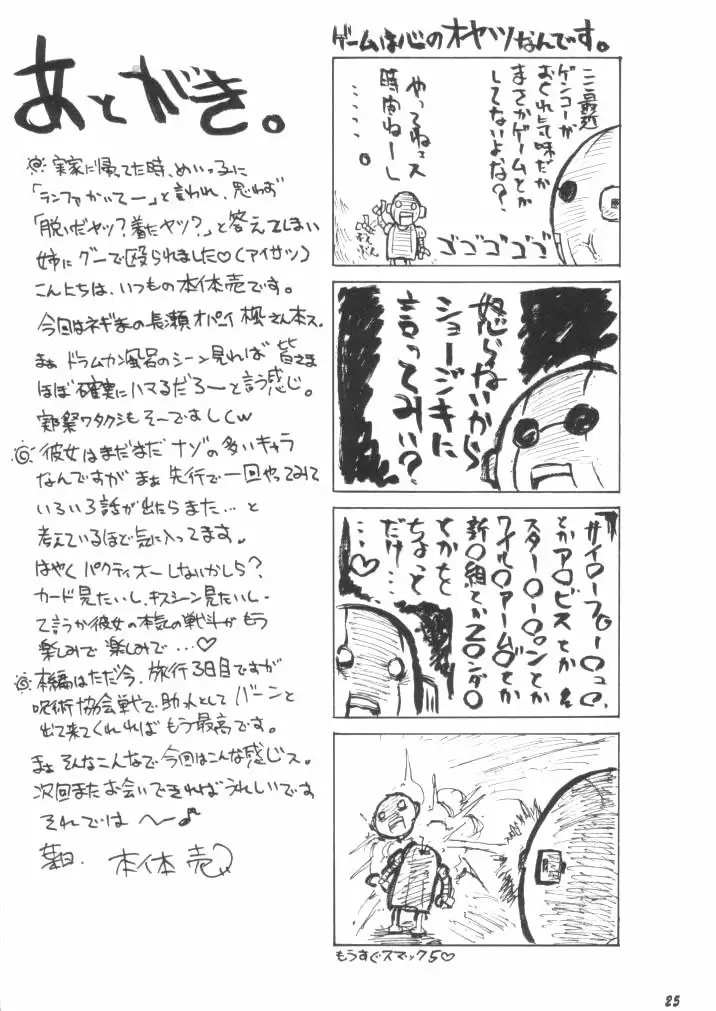 ゲームは心のオヤツなんです。
ここ最近
ゲンコーが
おくれ気味だが
まさかゲームとか
してないよな?
やってねェス
時間ねーし
・・・・・。
ゴゴゴゴゴ
怒らないから
ショージキに
言ってみい?
サイ○ーフ○ー○ュ○、
とかア○ビスとか
スター○ー○ンとか
ワイル○アームズとか
新○組とかZ○ンダ○
とかをと
ちょっと
だけ…
…♡
もうすぐスマック5♡
あとがき。
実家に帰ってた時、めいっ子に
「ランファかいてー」と言われ、思わず
「脱いだヤツ?着たヤツ?」と答えてしまい
姉にグーで殴られました♡(アイサツ)
こんにちは、いつもの本体売です。
今回はネギまの長瀬オパーイ楓さん本ス。
まぁ ドラムカン風呂のシーン見れば 皆さま
ほぼ確実にハマるだろーと言う感じ。
実際ワタクシもそーでましくw
彼女はまだまだ ナゾの多いキャラ
なんですが まぁ 先行で一回やってみて
いろいろ話が出たらまた… と
考えているほど気に入ってます。
はやく パクティオーしないかしら?
カード見たいし、キスシーン見たいし-
て言うか彼女の本気の戦斗がもう
楽しみで楽しみで…♡
本編はただ今、旅行3日目ですが
呪術協会戦で助っ人として バーンと
出て来てくれればもう最高です。
まぁ そんなこんなで今回はこんな感じス。
次回またお会いできればうれしいです
それでは へ〜♪
本体売
25